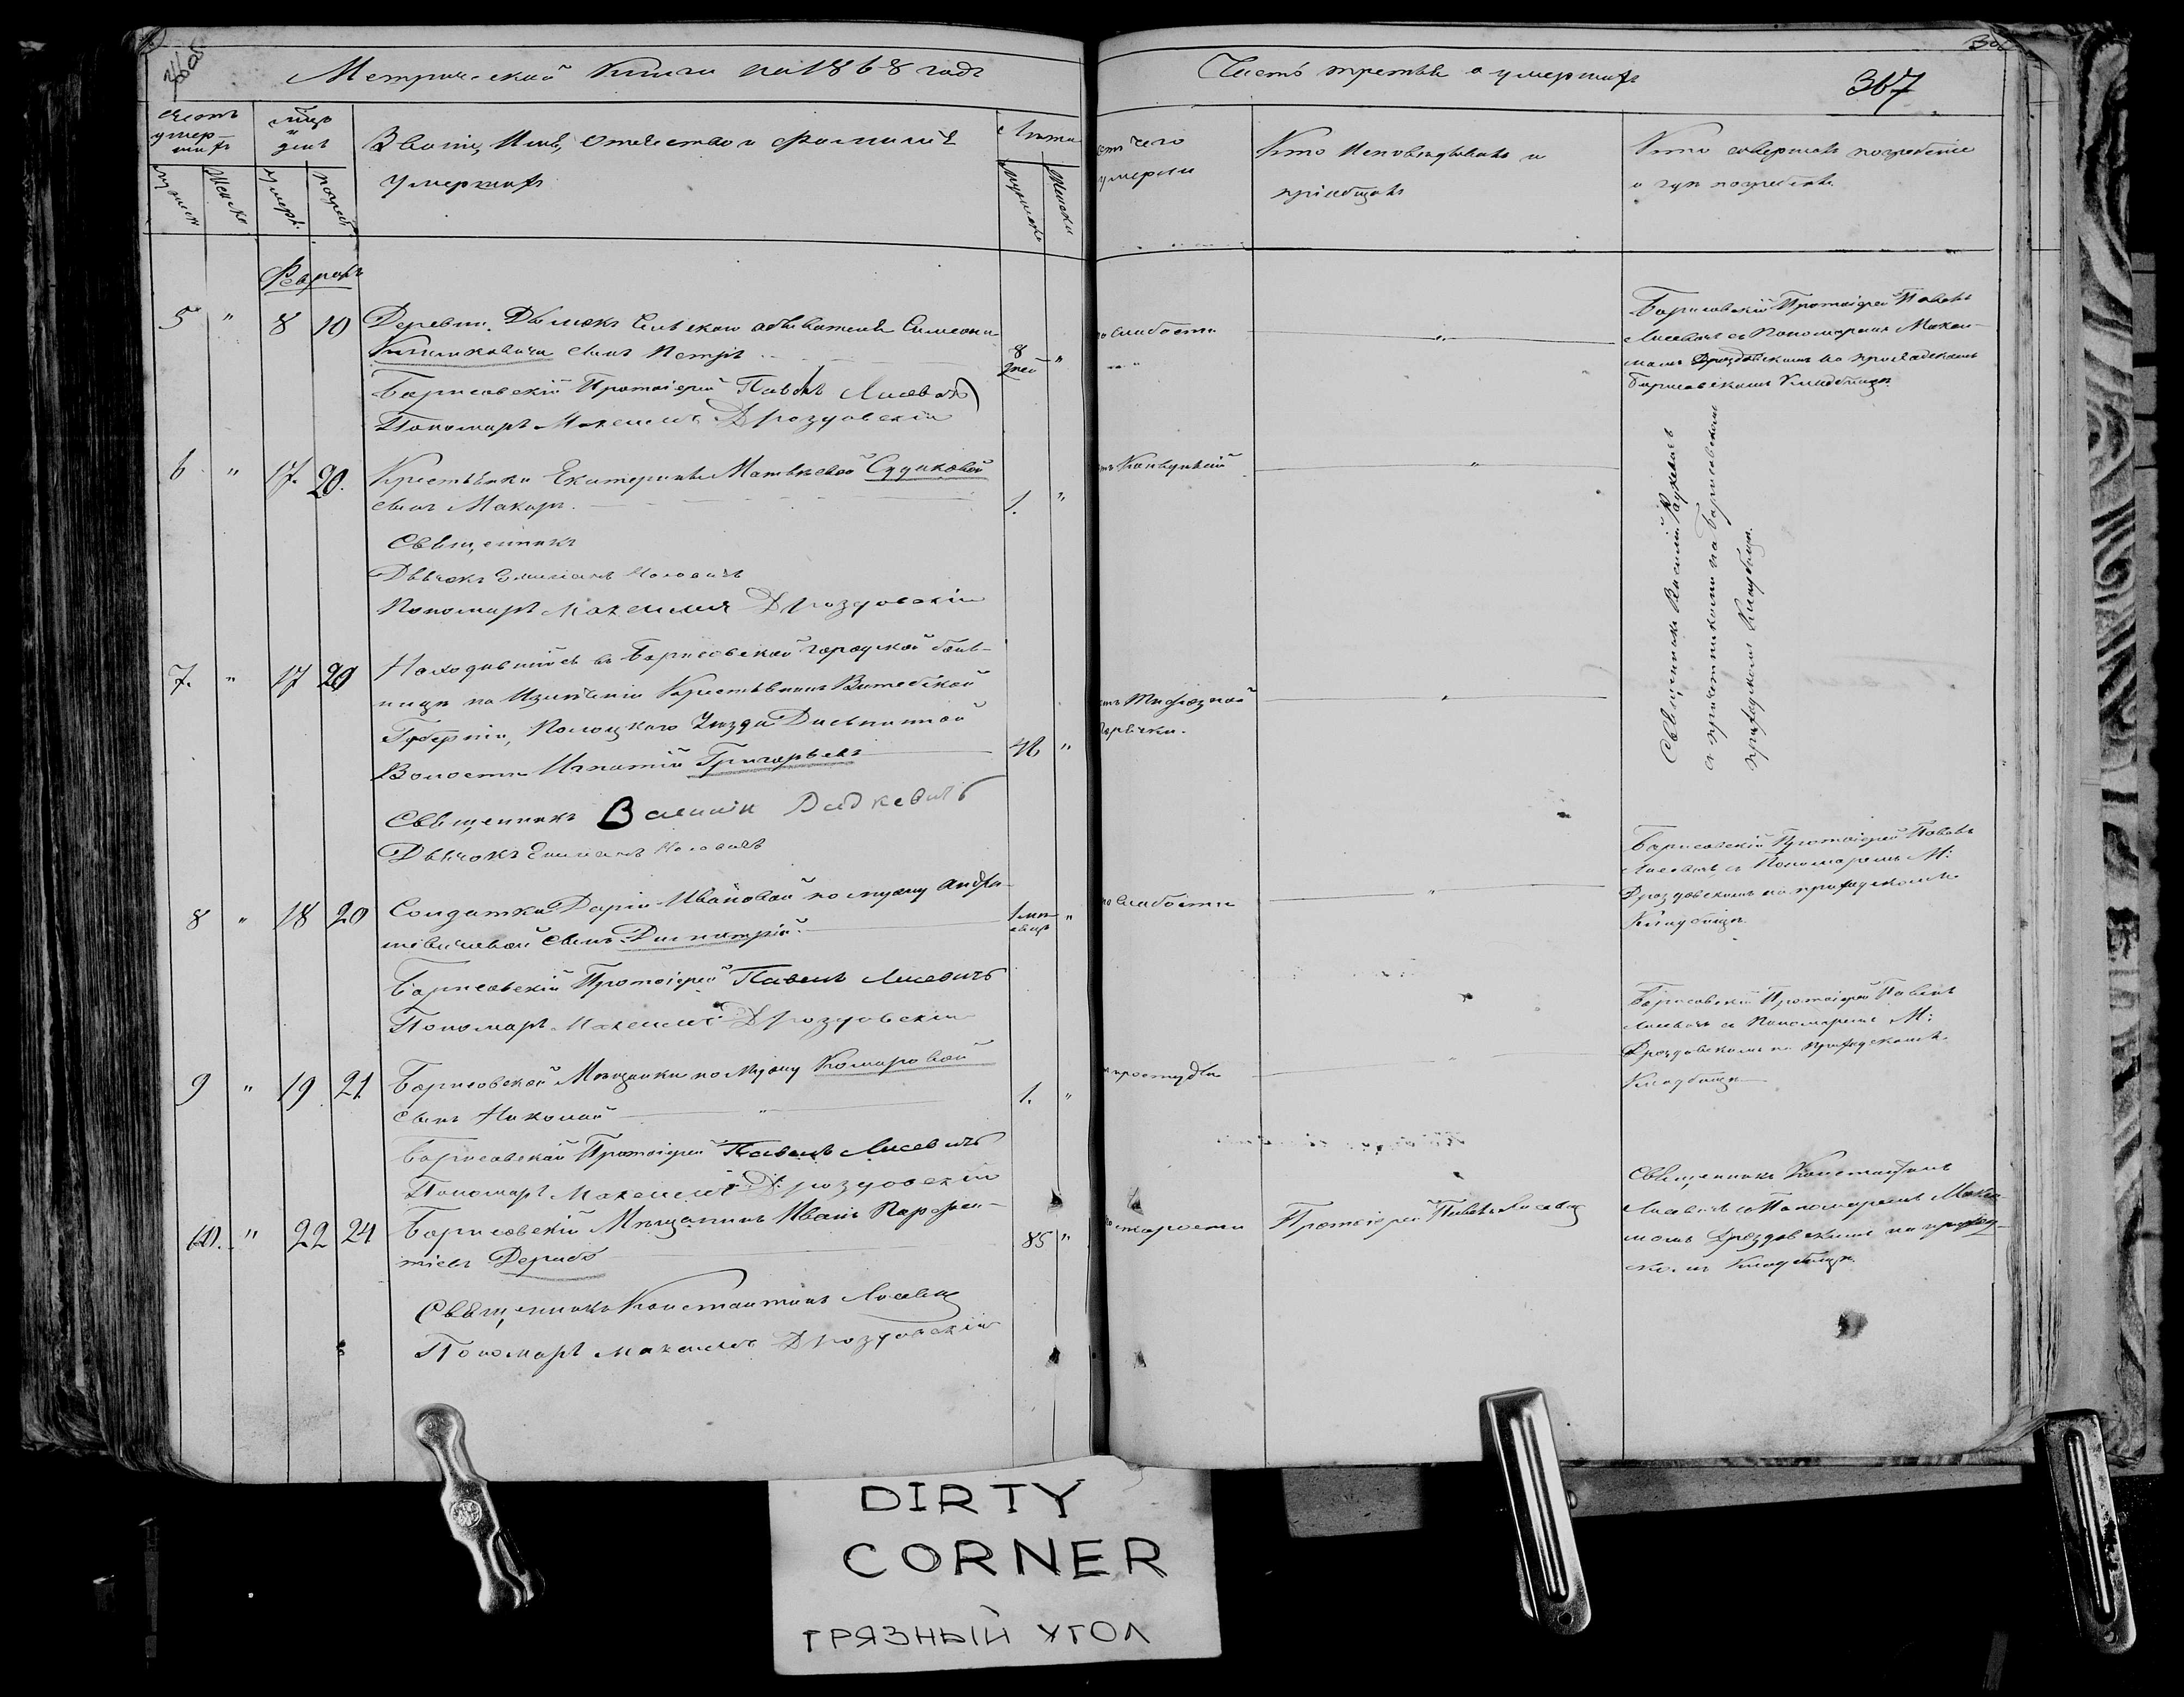 Метрической Книги на 1868 годъ
Счетъ умер-шихъ
Мѣсяцъ и день
Званіе, Имя, Отчество и Фамилія
умершихъ
Лѣта
Мужеска
Женска
умерш.
погреб.
мужеска
Женска
Февраль
5 " 8 10 Деревни Дымокъ Сельскаго обывателя Симеона
сынъ Петръ 8 дней "
Борисовскій Протоіерей Павелъ Лисевичъ
Пономарь Максимъ Дроздовскій
6 " 17. 20. Крестьянки Екатерины Матвѣевой Судиковой
сынъ Макаръ. 1. "
Священникъ
Дьячокъ Емиліанъ
Пономарь Максимъ Дроздовскій
7. " 17 20 Находившійся въ Борисовской городской боль-
ницѣ на Излеченіи Крестьянинъ Витебской
Губерніи, Полоцкаго Уѣзда
Волости Игнатій Григорьевъ 46 "
Священникъ Василій
Дьячокъ Емиліанъ
8 " 18 20 Солдатки Даріи Ивановой по мужу
сынъ Димитрій. 1 мѣ-сяцъ "
Борисовскій Протоіерей Павелъ Лисевичъ
Пономарь Максимъ Дроздовскій
9 " 19 21 Борисовской Мѣщанки по Мужу Комаровой
сынъ Николай " 1. "
Борисовскій Протоіерей Павелъ Лисевичъ
Пономарь Максимъ Дроздовскій
10. " 22 24 Борисовскій Мѣщанинъ Иванъ Парфен-
тіевъ 85 "
Священникъ Константинъ Лисевичъ
Пономарь Максимъ Дроздовскій
Часть третья о умершихъ
367
отъ чего
умерли
Кто Исповѣдывалъ и
пріобщалъ
Кто совершалъ погребеніе
и гдѣ погребены
слабости "
Борисовскій Протоіерей Павелъ
Лисевичъ съ Пономаремъ Макси-
момъ Дроздовскимъ на приходскомъ
Борисовскомъ Кладбищѣ
"
Священникъ Василій
съ причетниками на Борисовскомъ
приходскомъ Кладбищѣ.
Тифозной
горячки. "
слабости "
Борисовскій Протоіерей Павелъ
Лисевичъ съ Пономаремъ М:
Дроздовскимъ на приходскомъ
Кладбищѣ
простуды "
Борисовскій Протоіерей Павелъ
Лисевичъ съ Пономаремъ М:
Дроздовскимъ на приходскомъ
Кладбищѣ
старости Протоіерей Павелъ Лисевичъ
Священникъ Константинъ
Лисевичъ съ Пономаремъ Макси-
момъ Дроздовскимъ на приход-
скомъ Кладбищѣ.
DIRTY
CORNER
ГРЯЗНЫЙ УГОЛ